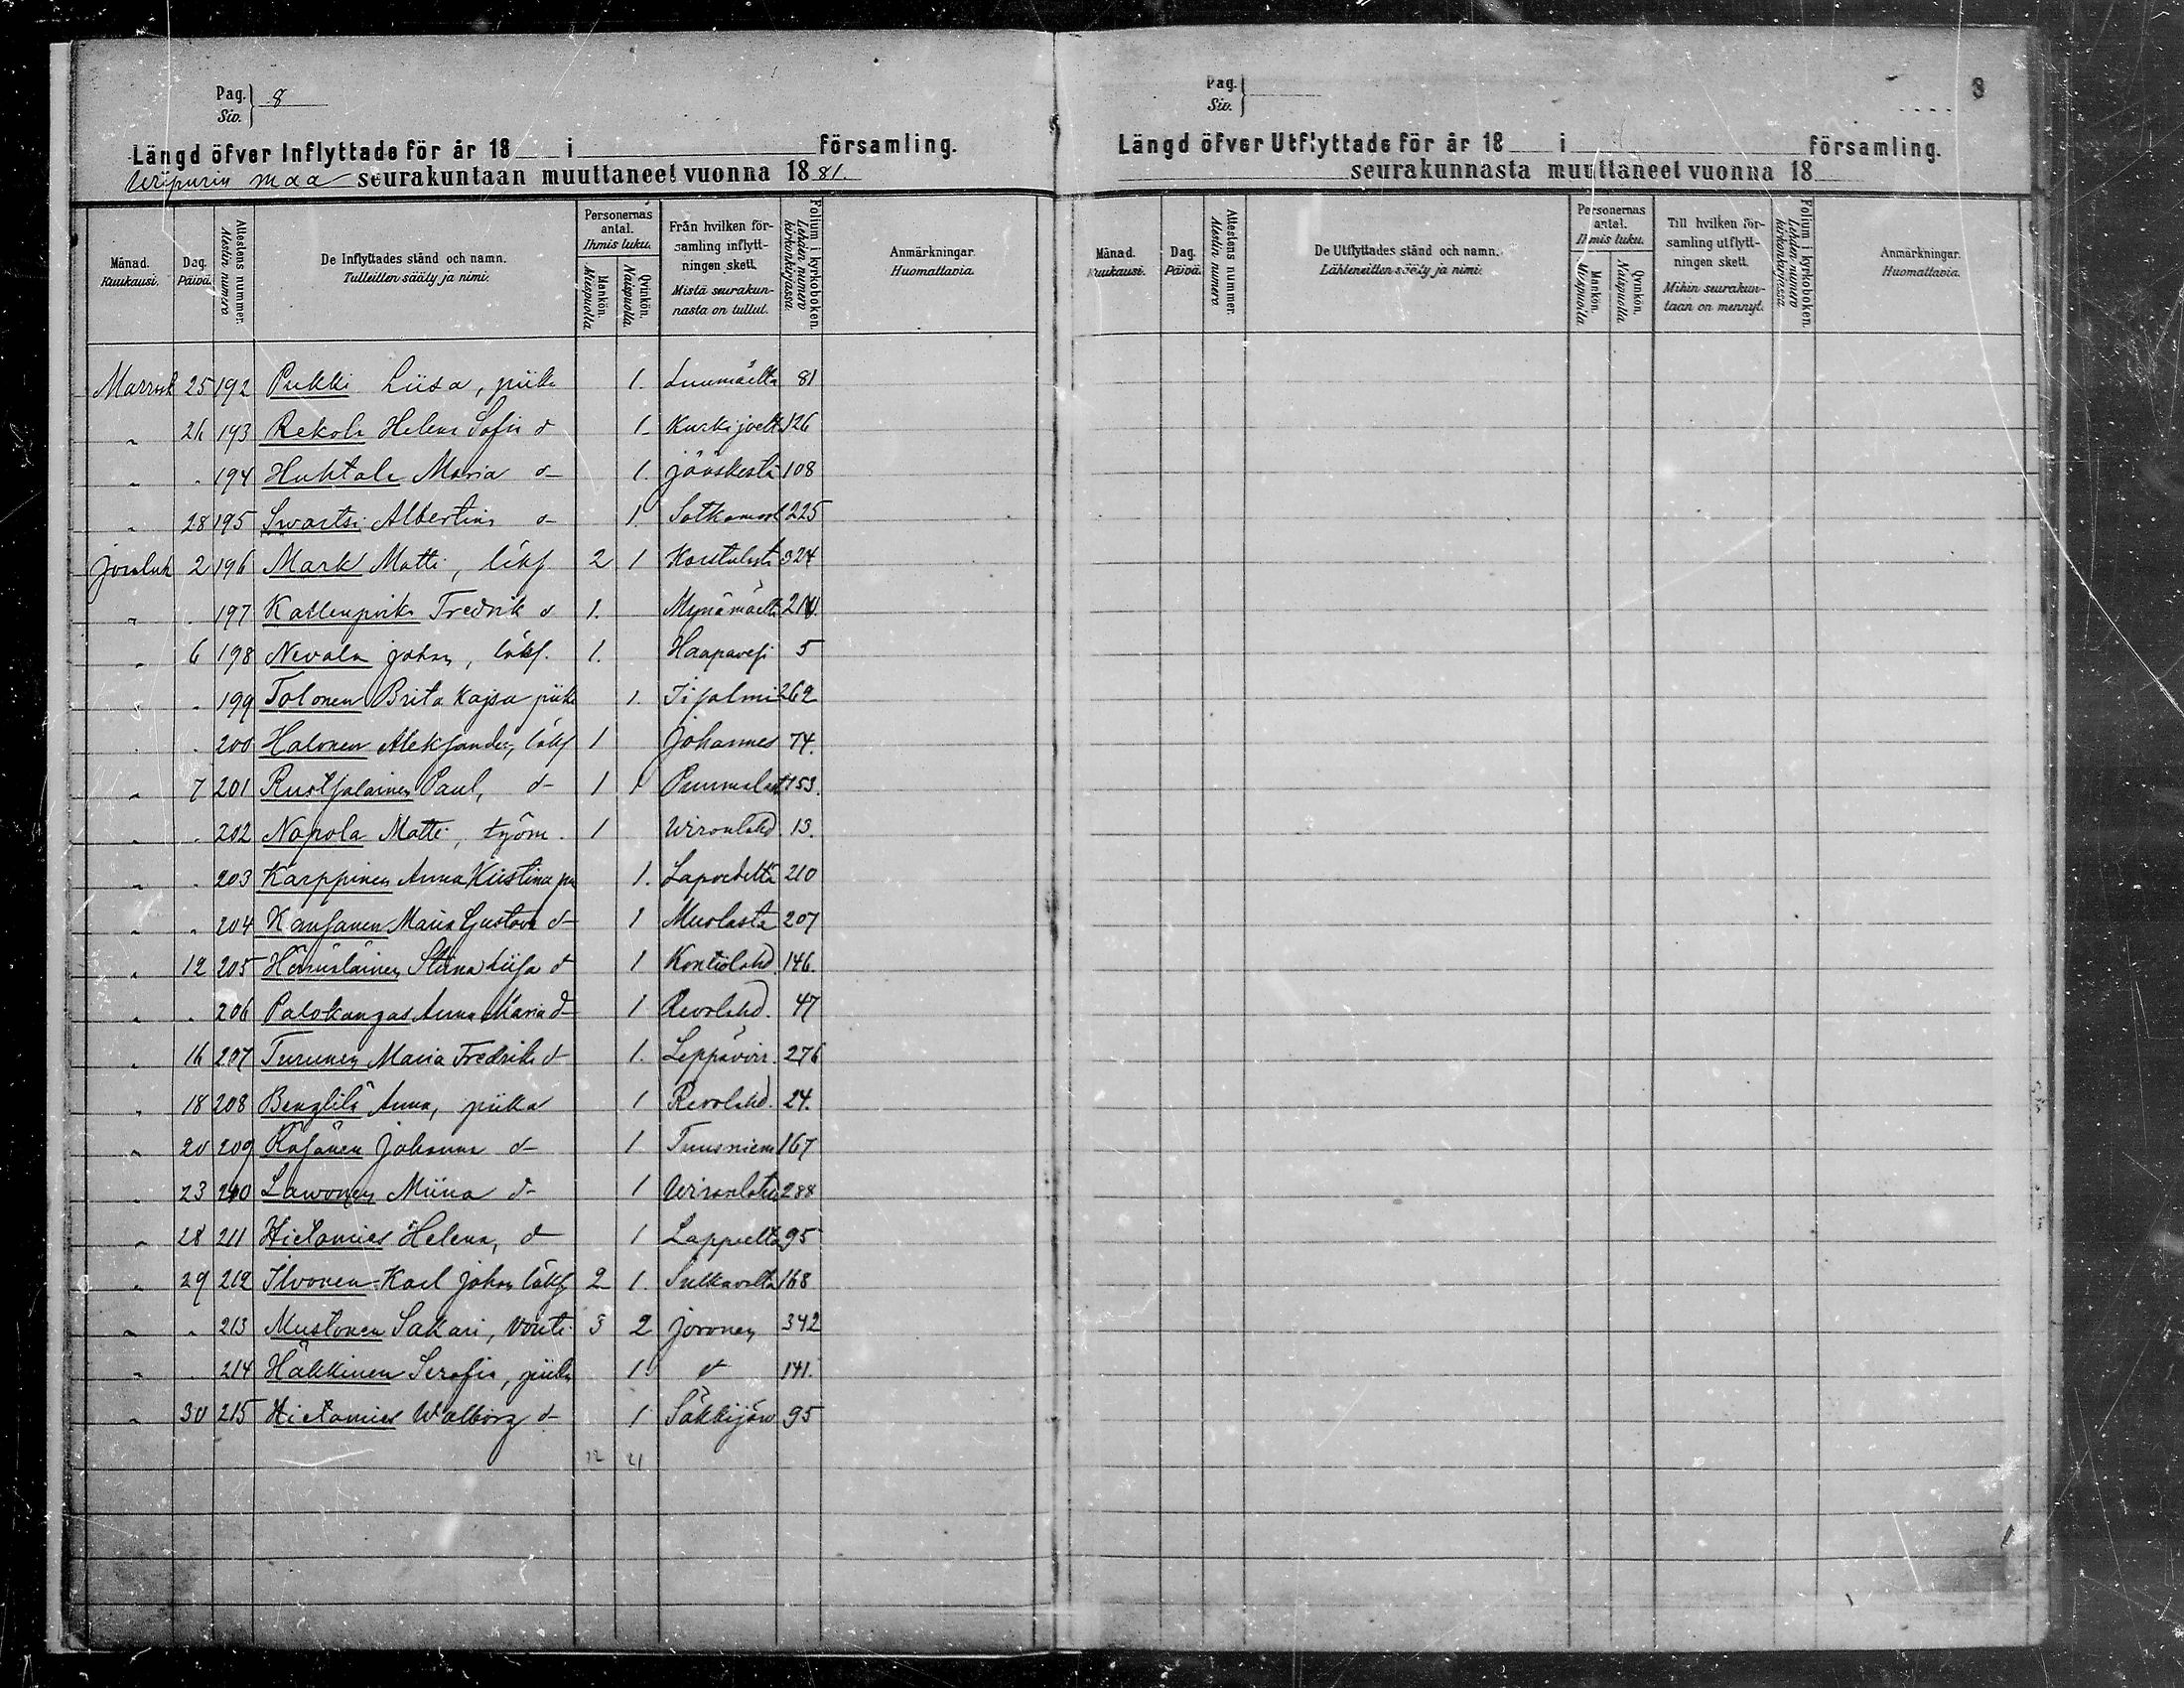 Pag. 8
Siv.
Längd öfver Inflyttade för år 18 i församling.
Wiipurin maa seurakuntaan muuttaneet vuonna 1881.
Månad. Kuukausi.
Dag. Päivä.
Attestens nummer. Alestin numero
De Inflyttades stånd och namn. Tulleitten sääty ja nimi.
Personernas antal. Ihmis luku.
Mankön. Miespuolia
Qvinkön. Naispuolia
Från hvilken församling inflyttningen skett. Mistä seurakunnasta on tullut.
Folium i kyrkoboken. Lehden numero kirkonkirjassa.
Anmärkningar. Huomattavia.
Marrask 25 192 Pukki Liisa, piika 1. Luumäeltä 81
" 26 193 Rekola Helena Sofia d 1. Kurkijoelt 126
" . 194 Huhtala Maria d- 1. Jääskestä 108
" 28 195 Swartsi Albertina d- 1. Sotkamost 225
Jouluk 2 196 Mark Matti, itsl. 2 1 Karstulasta 324
" . 197 Kattenpirka Fredrik d 1. Mynämäeltä
" 6 198 Nevala Johan, 1. Haapavesi 5
. 199 Tolonen Brita Kajsa piika 1. Iisalmi 262
. 200 Halonen Aleksander, 1 Johannes 74.
" 7 201 Paul, d- 1 1 Puumalast 153.
" . 202 Nopola Matti, työm. 1 Wironlahd 13.
" . 203 Karppinen Anna Kristina 1. Lapvedeltä 210
" . 204 Kansanen Maria Gustava d- 1 Muolasta 207
" 12 205 Stiina Liisa d 1 Kontiolahd. 146.
" . 206 Palokangas Anna Maria d- 1 Revolahd. 47
" 16 207 Turunen Maria Fredrika d 1. Leppävirr. 276
" 18 208 Anna, piika 1 Revolahd. 24.
" 20 209 Räsänen Johanna d- 1 Tuusniem 167
" 23 210 Lawonen Miina d- 1 Wironlahd 288
" 28 211 Hietamies Helena, d- 1 Lappeelta 95
" 29 212 Ilvonen Karl Johan 2 1. Sulkavalta 168
" . 213 Mustonen Sakari, vouti 3 2 Joroinen 342
" . 214 Häkkinen Serafia, piika 1. d 141.
" 30 215 Hietamies Walborg d- 1 Säkkijärv 95
12 21
3
Pag.
Siv.
Längd öfver Utflyttade för år 18 i församling.
seurakunnasta muuttaneet vuonna 18
Månad. Kuukausi.
Dag. Päivä.
Attestens nummer. Alestin numero
De Utflyttades stånd och namn. Lähteneitten sääty ja nimi.
Personernas antal. Ihmis luku.
Mankön. Miespuolia
Qvinkön. Naispuolia
Till hvilken församling utflyttningen skett. Mihin seurakuntaan on mennyt.
Folium i kyrkoboken. Lehden numero kirkonkirjassa
Anmärkningar. Huomattavia.